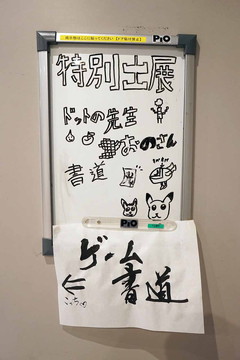 PiO
特別出展
ドットの先生
おのさん
書道
PiO
ゲーム
書道
←
こちら